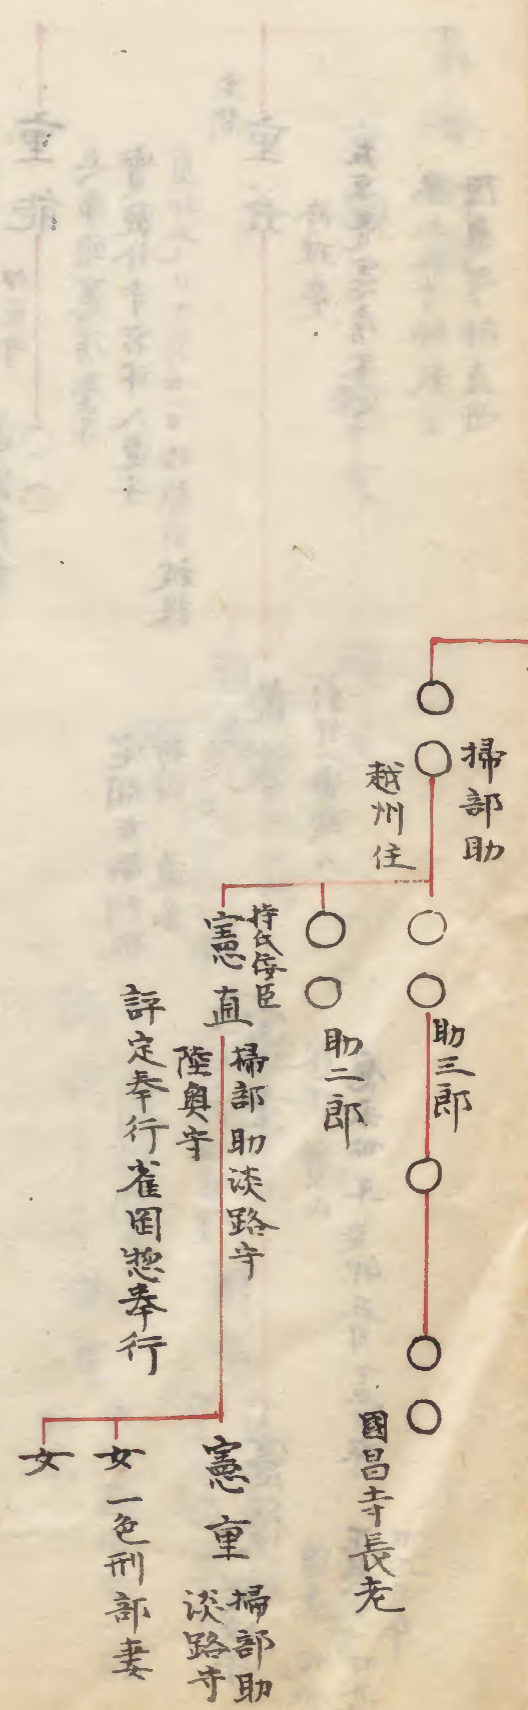 ○○
掃部助
越州住
○○
助三郎
○
○○
國昌寺長老
○○
助二郎
持氏侫臣
憲直
掃部助淡路守
陸奥守
評定奉行雀罔惣奉行
憲重
掃部助
淡路守
女
一色刑部妻
女